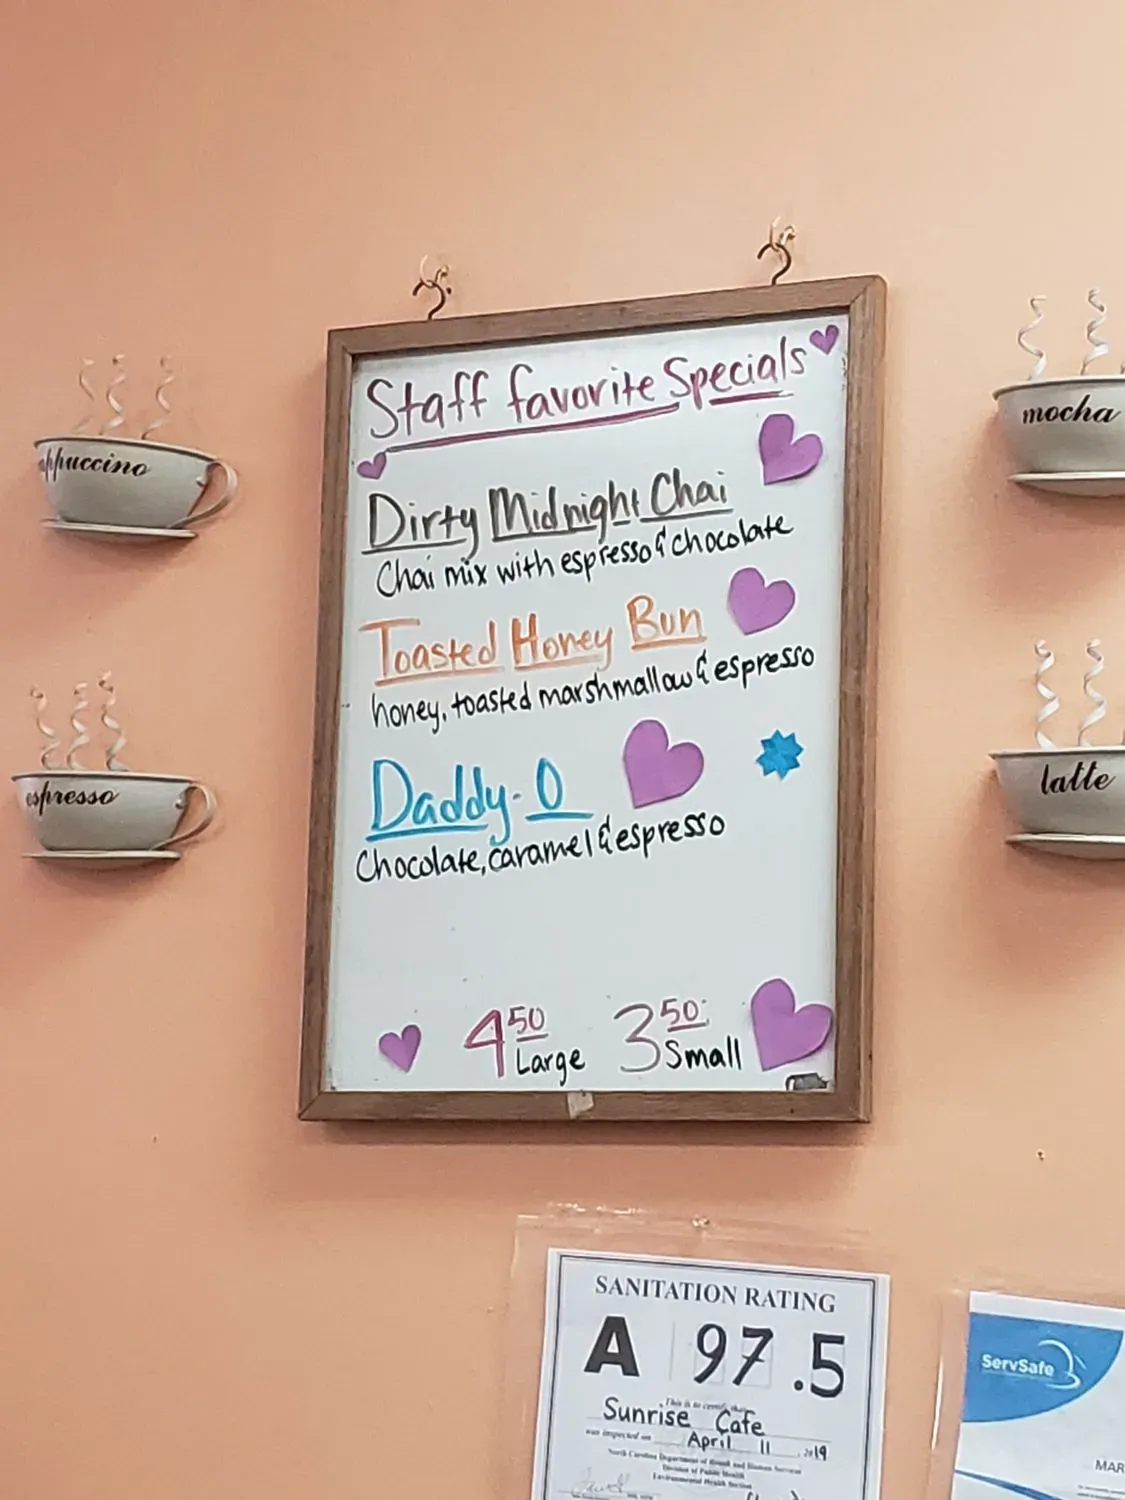 Staff favorite Specials
Dirty Midnight Chai
Chai mix with espresso & chocolate
Toasted Honey Bun
honey, toasted marshmallow & espresso
Daddy-O
Chocolate, caramel & espresso
4 50 Large 3 50 Small
appuccino
espresso
mocha
latte
SANITATION RATING
A 97.5
This is to certify that
Sunrise Cafe
was inspected on April 11 2019
North Carolina Department of Health and Human Services
Division of Public Health
Environmental Health Section
ServSafe
MAR